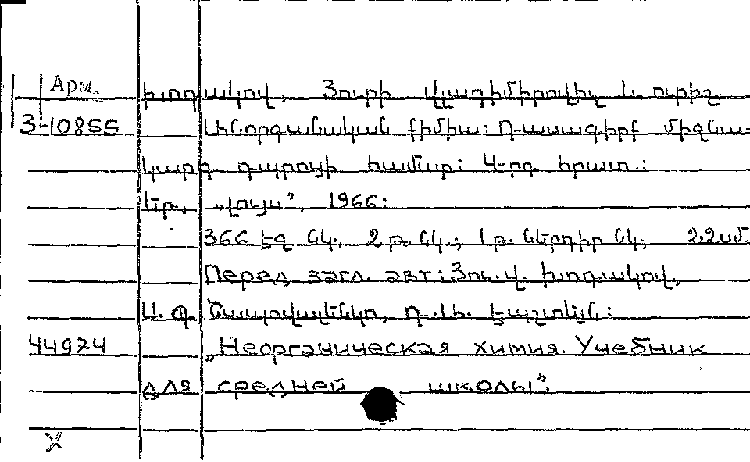 Арм.
Խոդակով, Յուրի Վլադիմիրովիչ և ուրիշ.
3-10855
Անօրգանական քիմիա: Դասագիրք միջնա-
կարգ դպրոցի համար: 4-րդ հրատ.:
Եր., „Լույս”, 1966:
366 էջ նկ., 2 թ. նկ.; 1 թ. ներդիր նկ; 22սմ.
Перед загл. авт.: Յու. Վ. Խոդակով,
Ա. Գ.
44974
„Неорганическая химия. Учебник
для средней школы”.